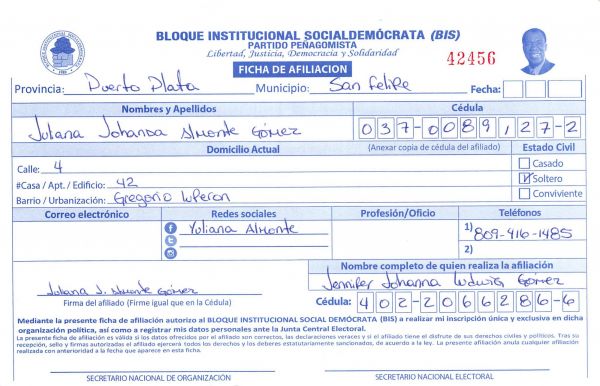 BLOQUE INSTITUCIONAL SOCIALDEMÓCRATA (BIS)
PARTIDO PEÑAGOMISTA
Libertad, Justicia, Democracia y Solidaridad
42456
FICHA DE AFILIACION
Provincia: Puerto Plata Municipio: San Felipe Fecha:
Nombres y Apellidos Cédula
Juliana Johanna Almonte Gómez 037-0089127-2
Domicilio Actual (Anexar copia de cédula del afiliado) Estado Civil
Calle: 4 Casado
#Casa / Apt. / Edificio: 42 Soltero
Barrio / Urbanización: Gregorio Luperon Conviviente
Correo electrónico Redes sociales Profesión/Oficio Teléfonos
Yuliana Almonte 1) 809-416-1485
2)
Nombre completo de quien realiza la afiliación
Juliana J. Almonte Gómez Jennifer Johanna Ludwig Gómez
Firma del afiliado (Firme igual que en la Cédula) Cédula: 402-2066286-6
Mediante la presente ficha de afiliación autorizo al BLOQUE INSTITUCIONAL SOCIAL DEMÓCRATA (BIS) a realizar mi inscripción única y exclusiva en dicha
organización política, así como a registrar mis datos personales ante la Junta Central Electoral.
La presente ficha de afiliación es válida si los datos ofrecidos por el afiliado son correctos, las declaraciones veraces y si el afiliado tiene el disfrute de sus derechos civiles y políticos. Tras su
recepción, sello y firmas autorizadas el afiliado ejercerá todos los derechos y los deberes estatutariamente sancionados, de acuerdo a la ley. La presente afiliación anula cualquier afiliación
realizada con anterioridad a la fecha que aparece en esta ficha.
SECRETARIO NACIONAL DE ORGANIZACIÓN SECRETARIO NACIONAL ELECTORAL